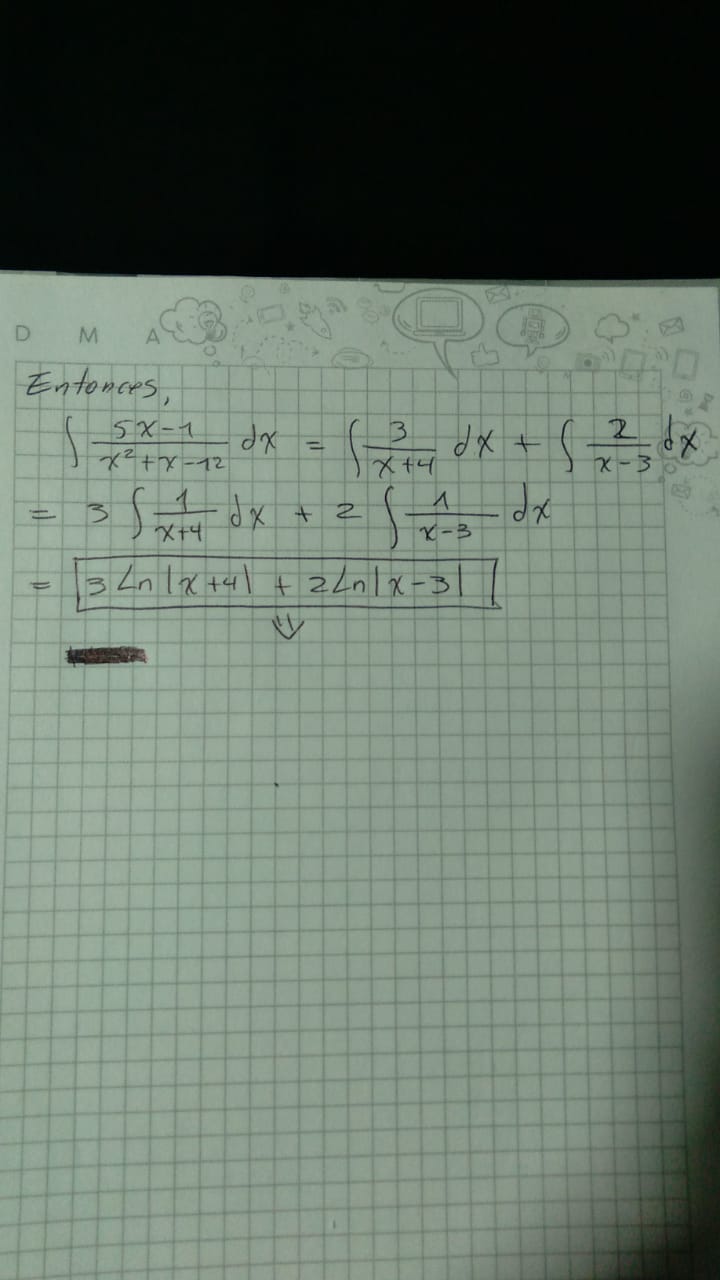 D M A
Entonces,
∫ 5x-1/x²+x-12 dx = ∫ 3/x+4 dx + ∫ 2/x-3 dx
= 3 ∫ 1/x+4 dx + 2 ∫ 1/x-3 dx
= 3 Ln|x+4| + 2Ln|x-3|